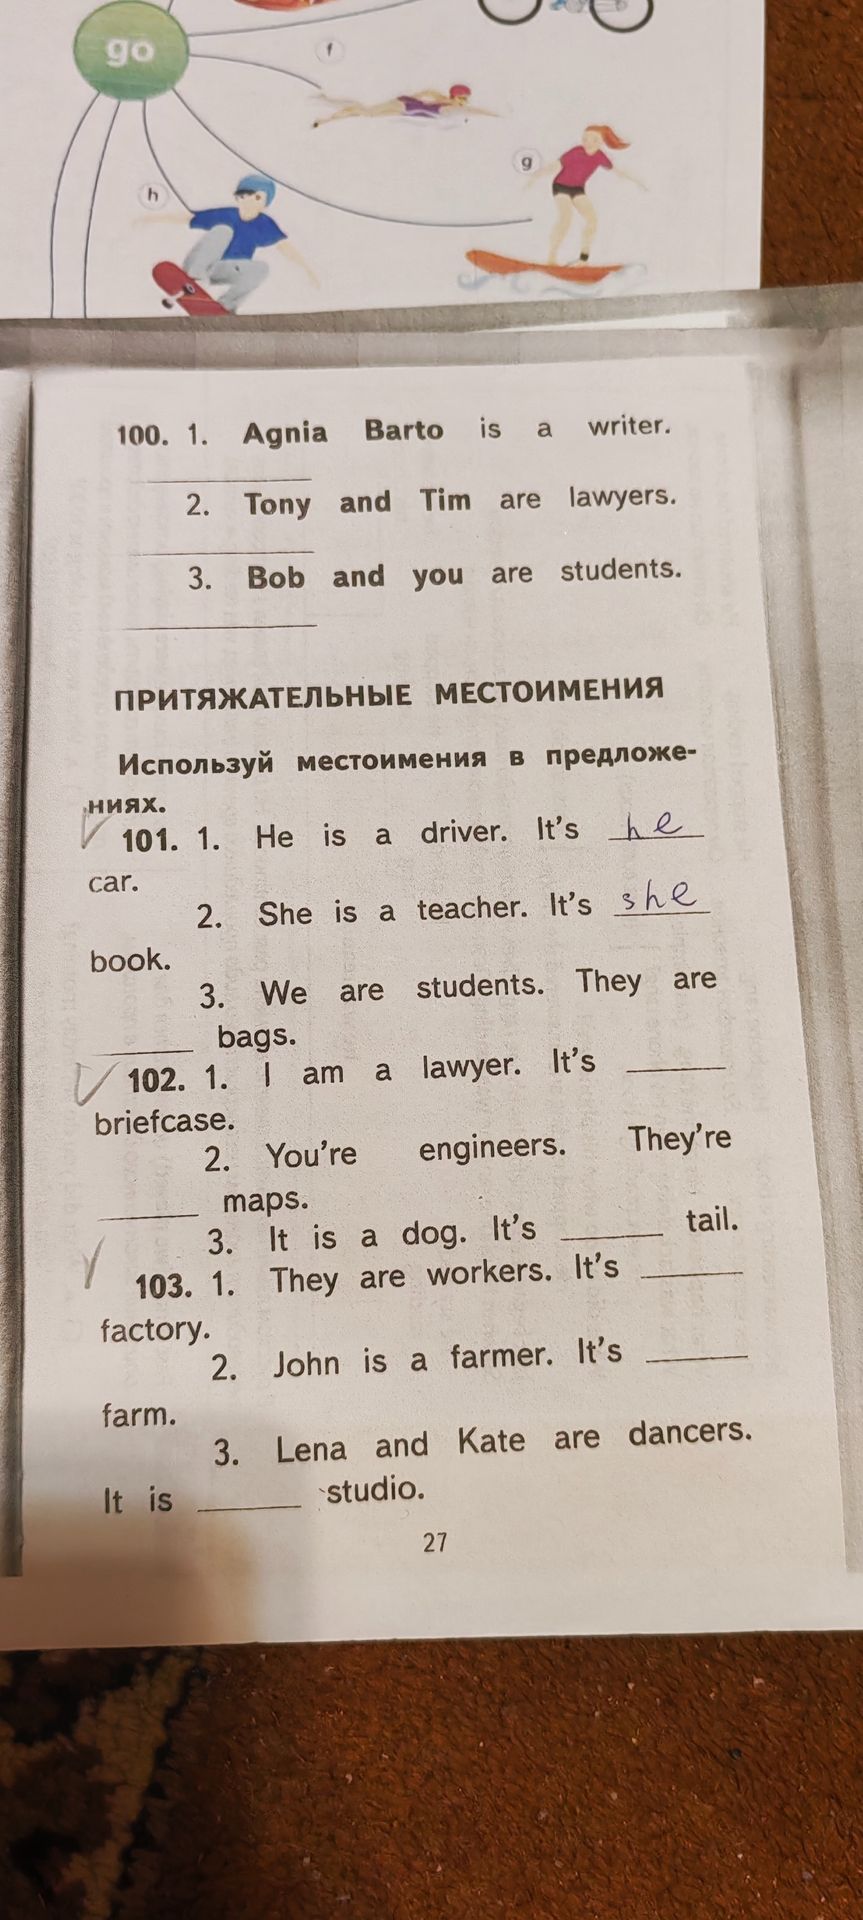 go
f
g
h
100. 1. Agnia Barto is a writer.
2. Tony and Tim are lawyers.
3. Bob and you are students.
ПРИТЯЖАТЕЛЬНЫЕ МЕСТОИМЕНИЯ
Используй местоимения в предложе-
ниях.
101. 1. He is a driver. It's he
car.
2. She is a teacher. It's she
book.
3. We are students. They are
bags.
102. 1. I am a lawyer. It's
briefcase.
2. You're engineers. They're
maps.
3. It is a dog. It's tail.
103. 1. They are workers. It's
factory.
2. John is a farmer. It's
farm.
3. Lena and Kate are dancers.
It is studio.
27